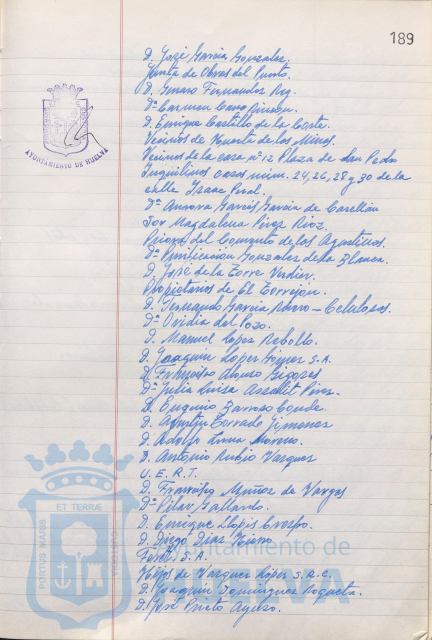 189
D. José García Gonzalez.
Junta de Obras del Puerto.
D. Genaro Fernandez Rey.
Dª Carmen Cano
D. Enrique Castillo de la Corte.
Vecinos de Huerta de los Minos.
Vecinos de la casa nº 12 Plaza de San Pedro
Inquilinos casas núm. 24, 26, 28 y 30 de la
calle Isaac Peral.
Dª Aurora Garcés García de
Sor Magdalena Pérez
Priora del Convento de las Agustinas.
Dª Purificación Gonzalez de la Blanca.
D. José de la Torre Verdier.
Propietarios de El Torrejón.
D. Fernando García – Celulosas.
Dª Ovidia del Pozo.
D. Manuel López Rebollo.
D. Joaquin López Gómez S.A.
D. Francisco Alonso Gigosos
Dª Julia Luisa Pérez.
D. Eugenio Barroso Conde.
D. Agustín Torrado Jimenez
D. Adolfo Moreno.
D. Antonio Rubio Vazquez
U. E. R. T.
D. Francisco Muñoz de Vargas
Dª Pilar Gallardo.
D. Enrique Llopis Crespo.
D. Diego Díaz Hierro
Foret S.A.
Hijos de Vazquez López S.R.C.
D. Joaquin Domínguez Roqueta.
D. José Prieto
AYUNTAMIENTO DE HUELVA
PORTUS MARIS ET TERRAE CUSTODIA
Ayuntamiento de
HUELVA